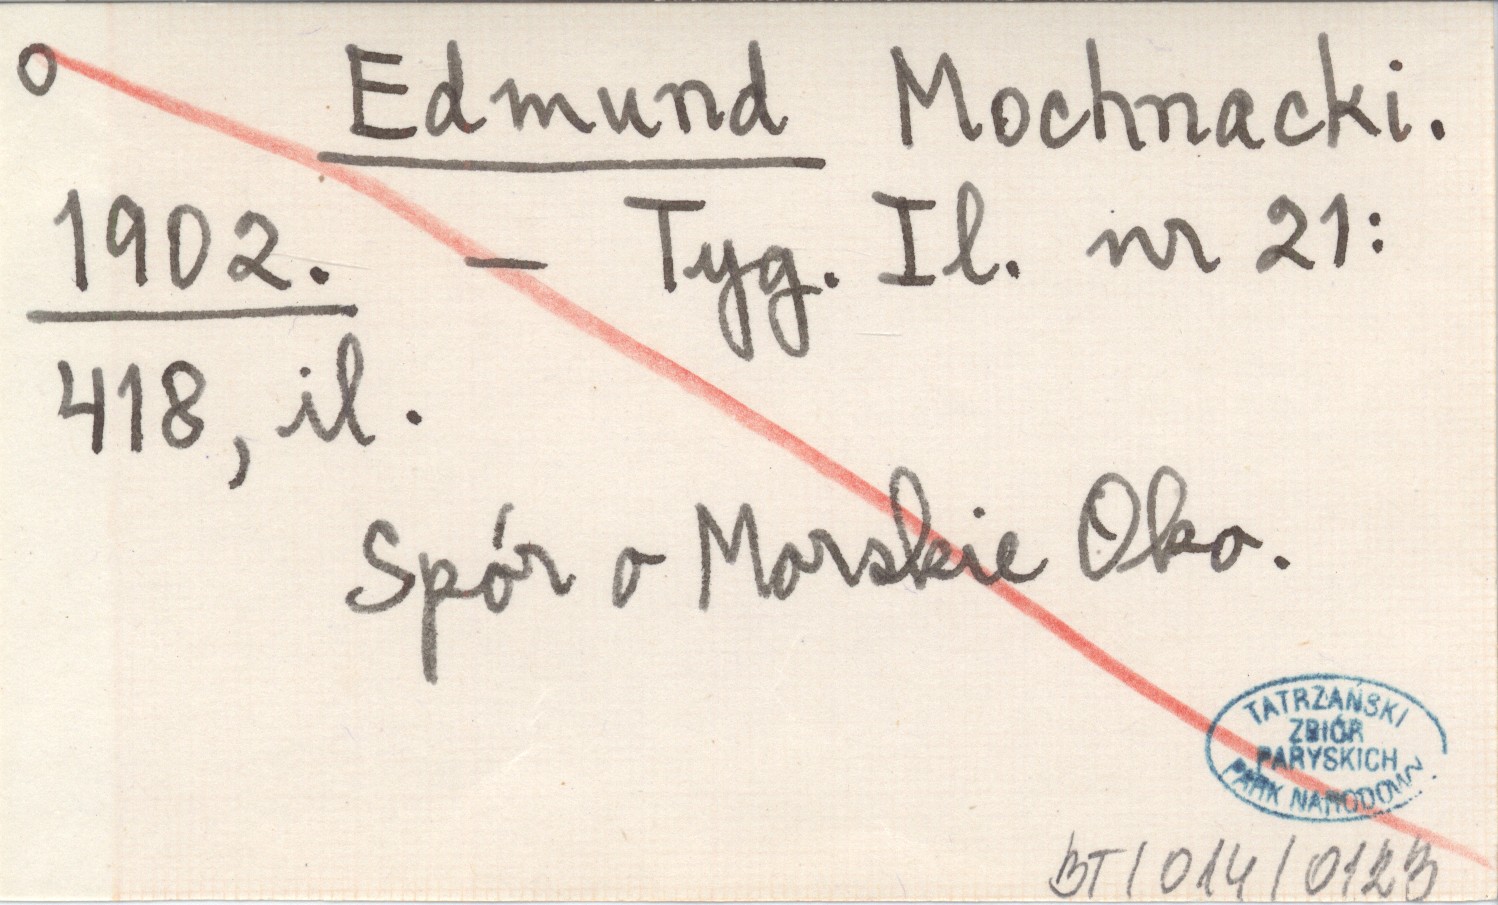 o Edmund Mochnacki.
1902. — Tyg. Il. nr 21:
418, il.
Spór o Morskie Oko.
TATRZAŃSKI
ZBIÓR
PARYSKICH
PARK NARODOWY
BT/014/0123